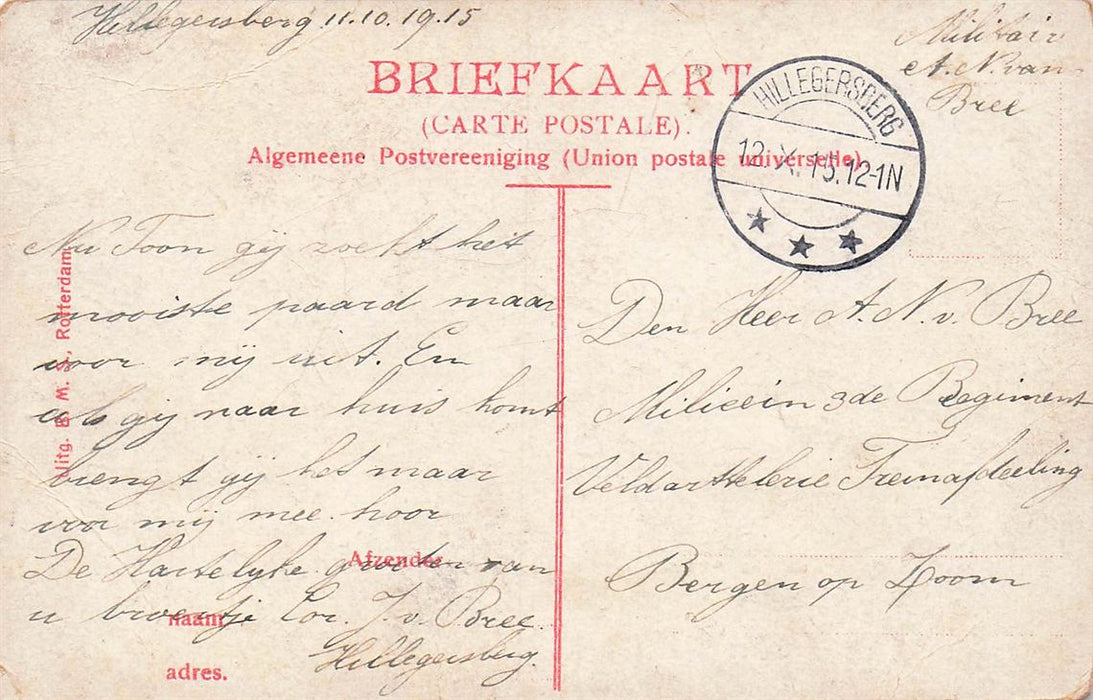 Hillegersberg 11.10.1915
Militair
A. N. van
Bree
BRIEFKAART
(CARTE POSTALE).
Algemeene Postvereeniging (Union postale universelle)
HILLEGERSBERG
12.X.15.12-1N
Nu Toon gij zoekt het
mooiste paard maar
voor mij uit. En
als gij naar huis komt
brengt gij het maar
voor mij mee hoor
De Hartelyke groeten van
u broertje Cor. J. v. Bree.
Hillegersberg.
Afzender
naam
adres.
Uitg. B. M. S., Rotterdam.
Den Heer A. N. v. Bree
Milicein 3de Regiment
Veldarttelerie Treinafdeeling
Bergen op Zoom